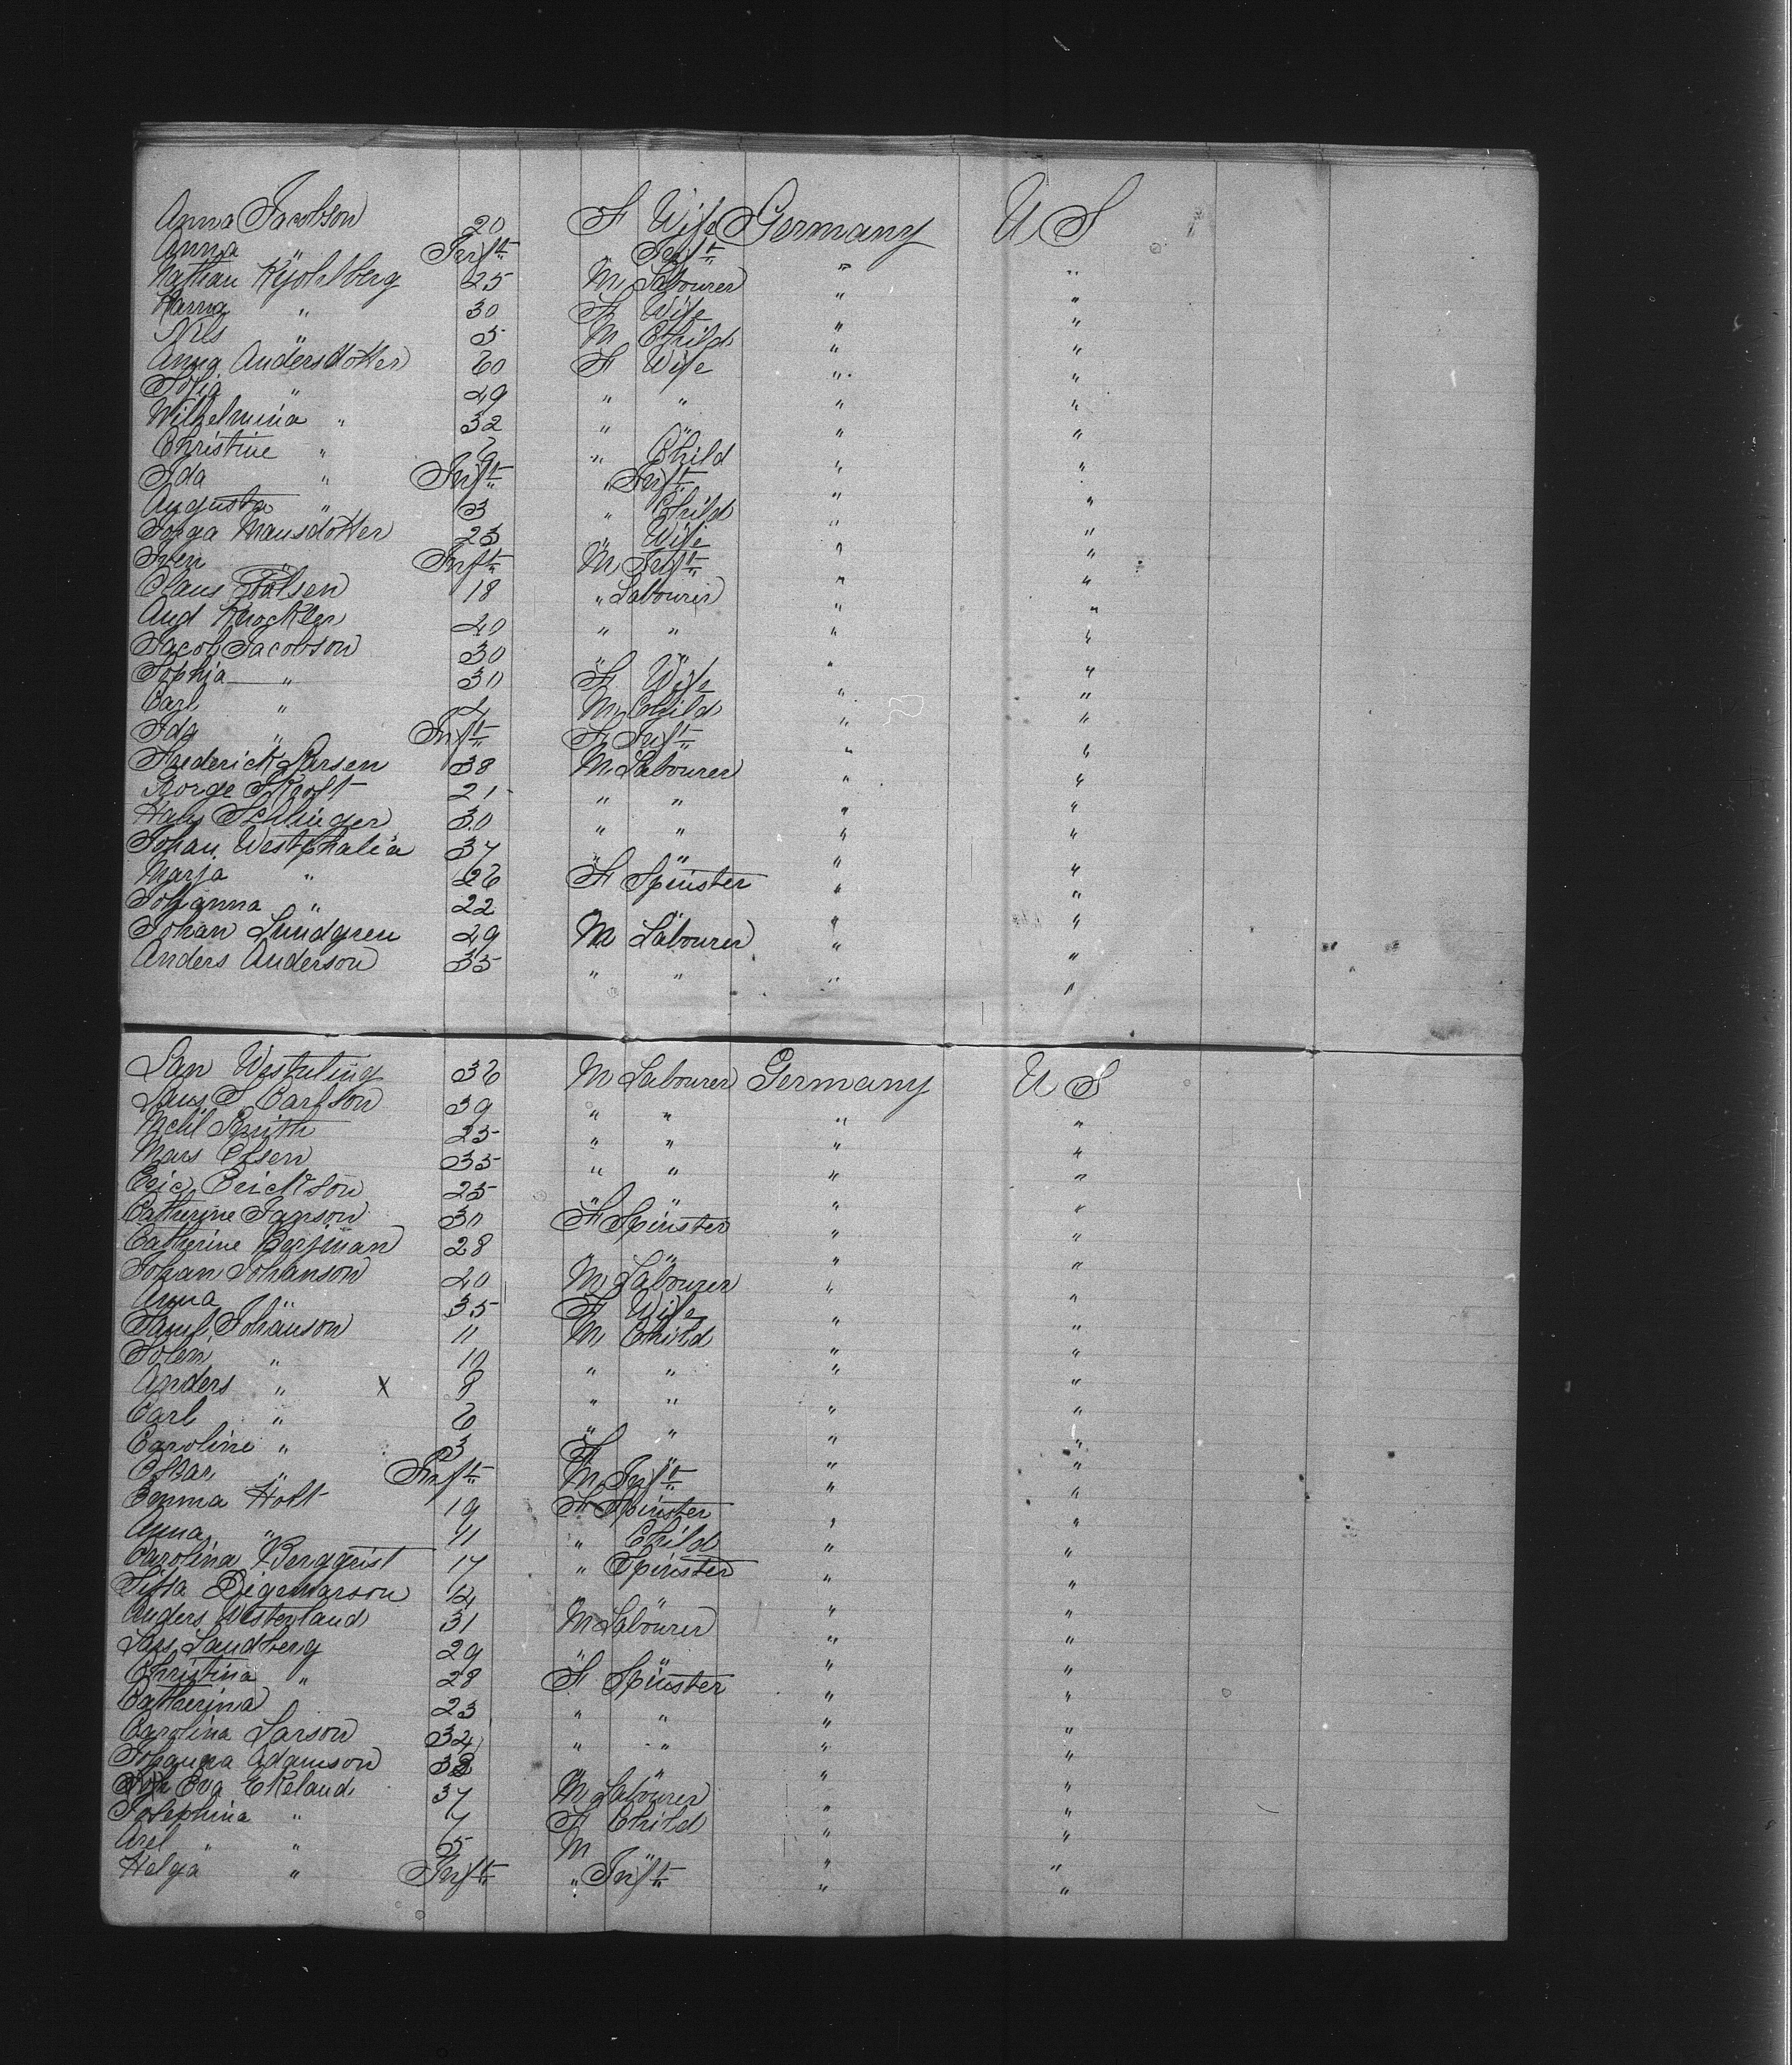 Anna Jacobson 20 F Wife Germany U S
Anna " Inft " Inft " "
Nathan Kjohlberg 25 M Labourer " "
Hanna " 30 F Wife " "
Nils " 5 M Child " "
Anna Andersdotter 60 F Wife " "
Sofia " 29 " " " "
Wilhelmina " 32 " " " "
Christine " 6 " Child " "
Ida " Inft " Inft " "
Augusta " 3 " Child " "
Mansdotter 23 " Wife " "
Sven Inft M Inft " "
Claus 18 " Labourer " "
Aud 20 " " " "
Jacob Jacobson 30 " " " "
Sophia " 30 F Wife " "
Carl " 4 M Child " "
Ida " Inft F Inft " "
Frederick Larsen 38 M Labourer " "
George 21 " " " "
Hans 30 " " " "
Johan Westphalia 37 " " " "
Marja " 26 F Spinster " "
Johanna " 22 " " " "
Johan Lundgren 29 M Labourer " "
Anders Anderson 35 " " " "
36 M Labourer Germany U S
Carlson 39 " " " "
Smith 25 " " " "
Mars Olsen 35 " " " "
Eric Erickson 25 " " " "
Catherine Janson 30 F Spinster " "
Catherine Berjman 28 " " " "
Johan Johanson 20 M Labourer " "
Anna " 35 F Wife " "
Saml Johanson 11 M Child " "
" 10 " " " "
Anders " X 8 " " " "
Carl " 6 " " " "
Caroline " 3 F " " "
Oskar " Inft M Inft " "
Emma Holt 19 F Spinster " "
Anna " 11 " Child " "
Carolina Bergqvist 17 " Spinster " "
12 " " " "
Anders Westerland 31 M Labourer " "
Lars Sandberg 29 " " " "
Christina " 28 F Spinster " "
Catherina 23 " " " "
Carolina Larson 32 " " " "
Johanna Adamson 33 " " " "
Eva Ekeland 37 M Labourer " "
Josephina " 7 F Child " "
Axel " " 5 M " "
Helga " Inft " Inft " "